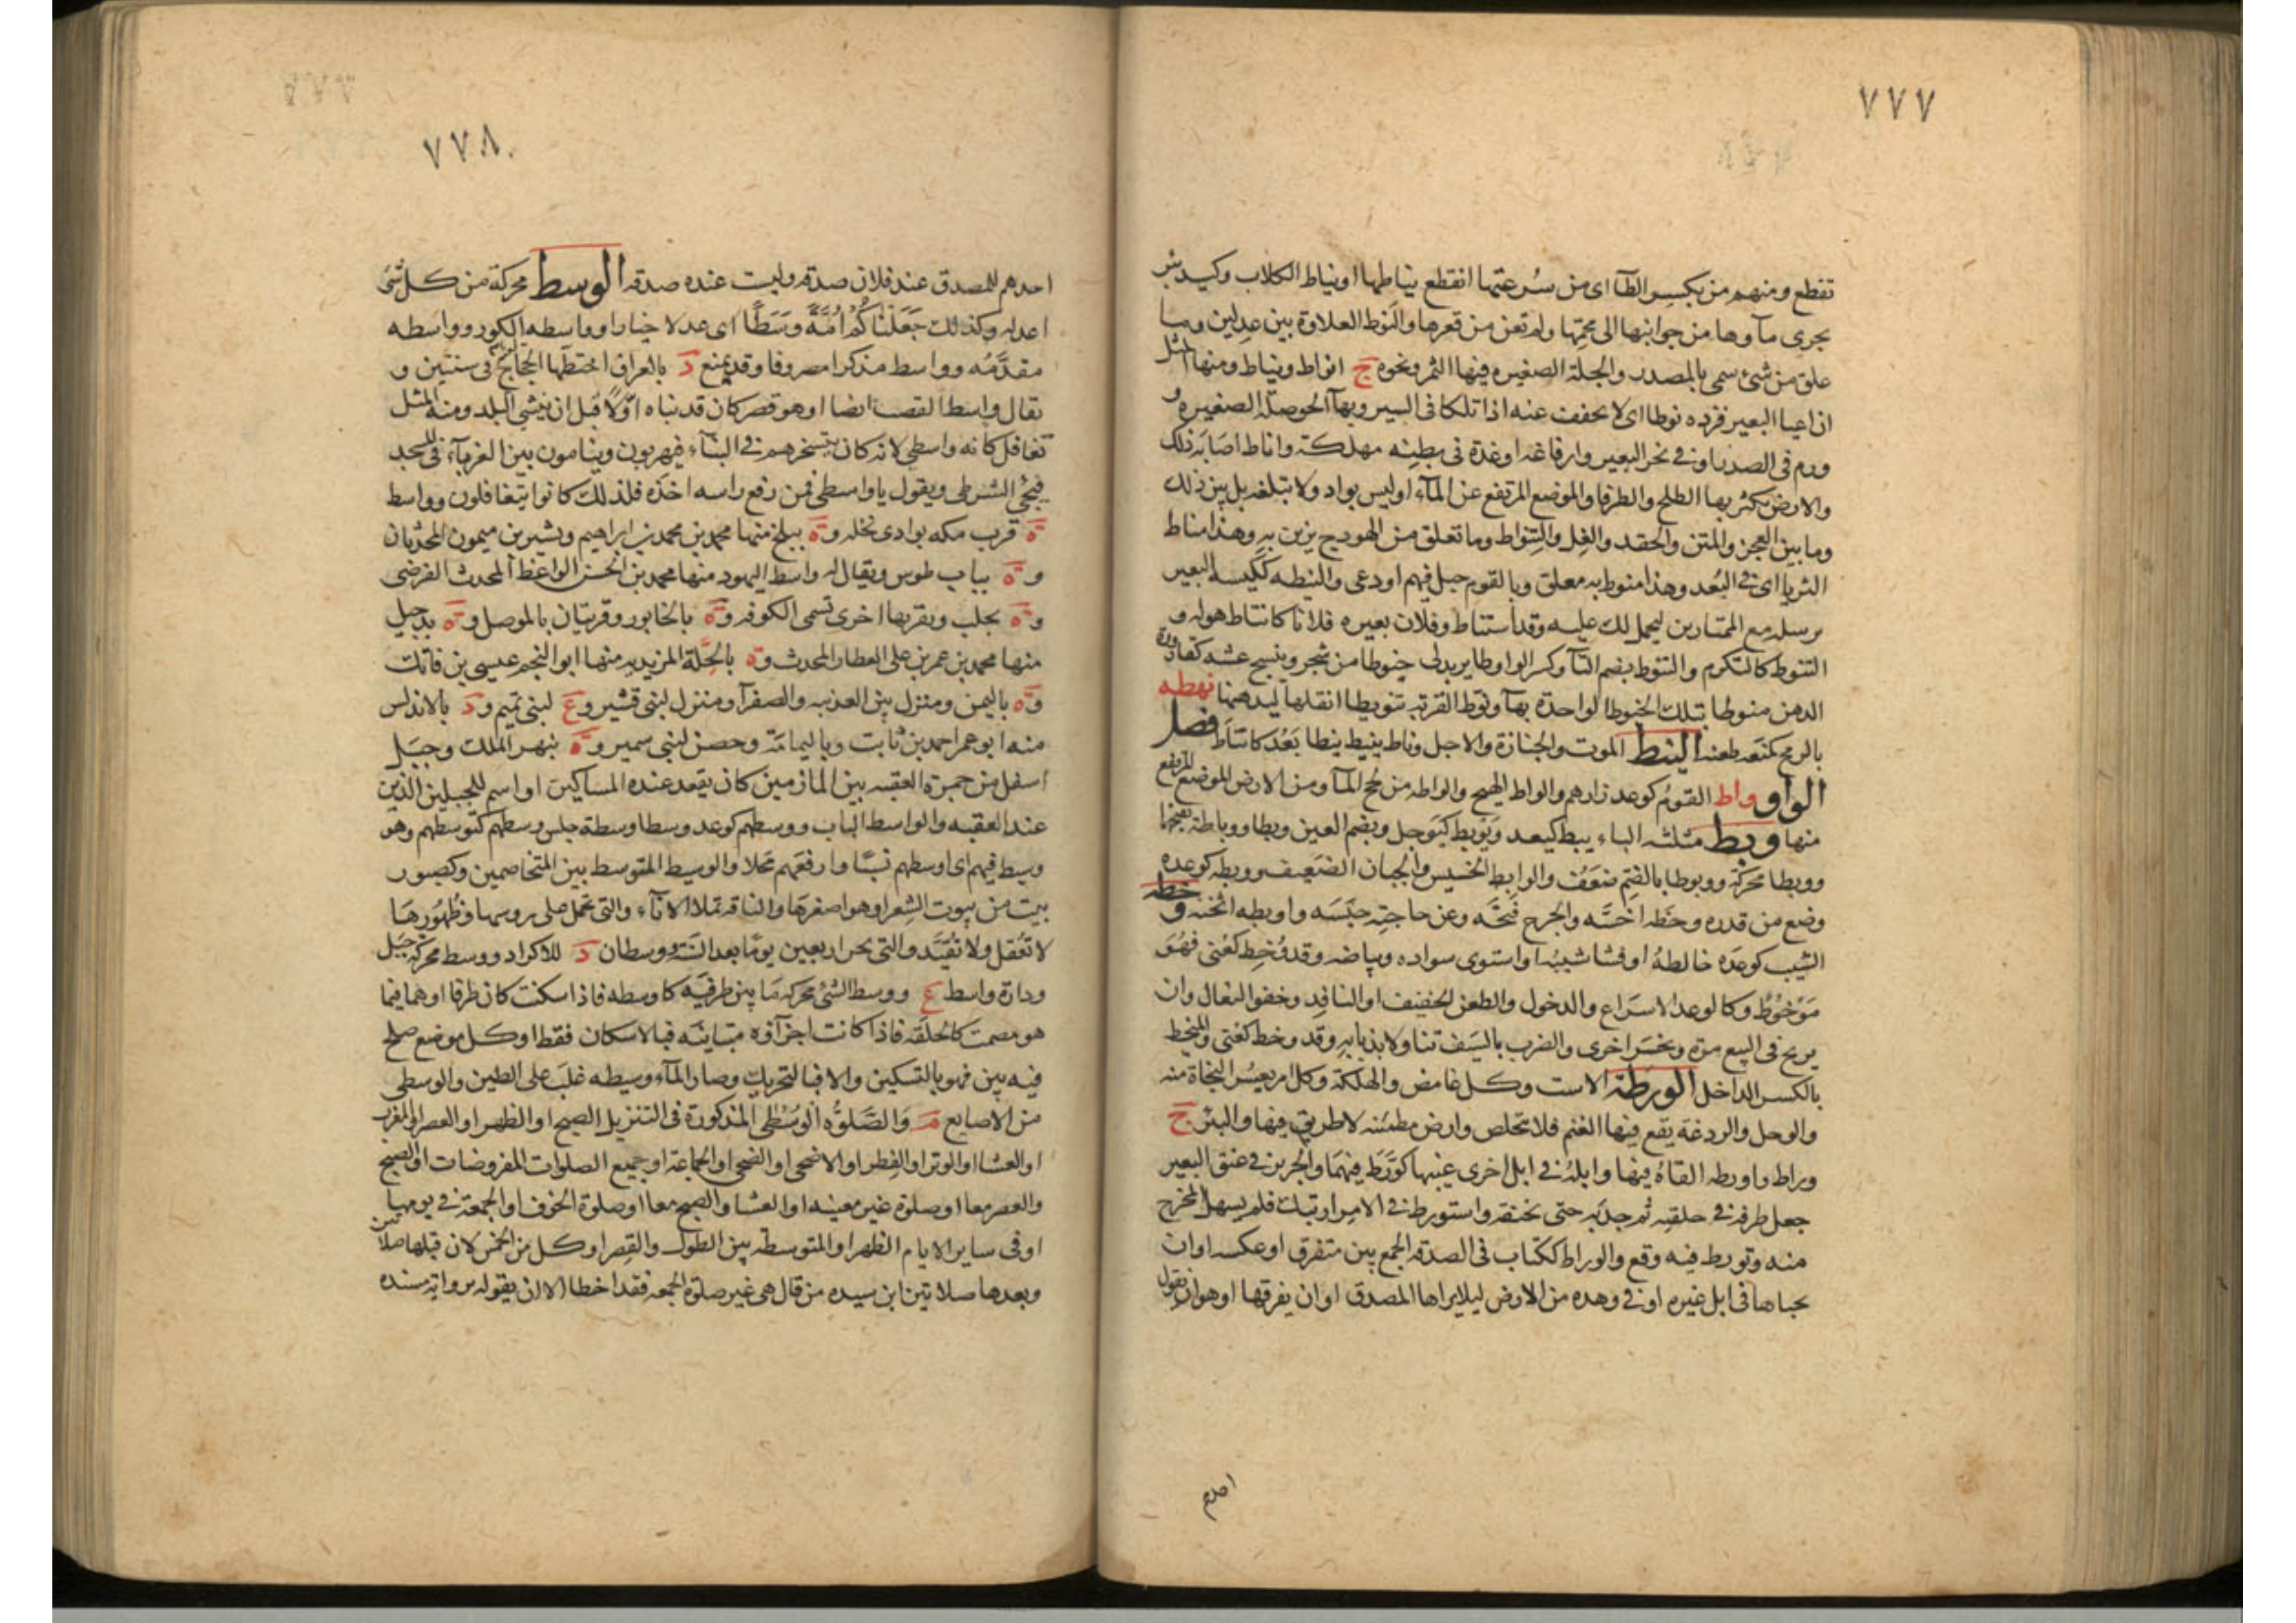 ٧٧٧
تقطع ومنهم من يكسر الطآ اى من سُرعتها انقطع نياطها او نياط الكلاب وكيد بئر
يجرى مآوها من جوانبها الى مجمّها ولم تعن من قعرها والنوط العلاوة بين عدلين وما
علق من شئ سمى بالمصدر والجلة الصغيره فيها الثمر ونحوه ج انواط ونياط ومنها المثل
ان اعيا البعير فزده نوطا اى لا تخفف عنه اذا تلكا فى السير وبهآ الحوصلة الصغيره و
ورم فى الصدر او فى نحر البعير وارفاغه او غدة فى بطنه مهلكة واناط اصابه ذلك
والارض يكثر بها الطلح والطرفا والموضع المرتفع عن المآء او ليس بواد ولا بتلغه بل بين ذلك
وما بين العجز والمتن والحقد والغل والتنواط وما تعلق من الهودج يزين به وهذا مناط
الثريا اى فى البُعد وهذا منوط به معلق وبالقوم دخيل فيهم او دعى والنيطه ككيسه البعير
يرسله مع الممتارين ليحمل لك عليه وقد استناط وفلان بعيره فلانا كانتاط هو له و
التنوط كالتكرم والتنوط بضم التآ وكسر الواو طاير يدلى خيوطا من شجر وينسج عشه كقارورة
الدهن منوطا بتلك الخيوط الواحدة بهآ ونوط القربة تنويطا اثقلها ليدهنها نهطه
بالرمح كمنعه طعنه النيط الموت والجنازة والاجل وناط ينيط نيطا بَعُد كانتَاطَ فصل
الواو واط القومُ كوعد زارهم والواط الهيج والواطه من لجج المآ ومن الارض الموضع المرتفع
منها وبط مثلثه الباء يبط كيعد ويَوبط كيَوجل وبضم العين وبطا ووباطة بفتحهما
ووبطا محركة ووبوطا بالضم ضَعَف والوابط الخسيس والجبان الضعيف ووبطه كوعده
وضع من قدره وحَظه اخسَّه والجرح فتحَّه وعن حاجته حبَسَه واوبطه اثخنه وخطه
الشيب كوعَده خالطهُ او فشا شيبُه او استوى سواده وبياضه وقد وُخِط كعُنى فهُوَ
مَوْخوُط وكالوعد الاسرَاع والدخول والطعن الخفيف او النافِد وخفو النعال وان
يربح فى البيع مرَّة ويخسَر اخرى والضرب بالسَيف تناولا بذبابه وقد وخط كعُنى والميخط
بالكسر الداخل الورطة الاست وكل غامض والهلكة وكل امر يعسُر النجاة منه
والوحل والردغة يقع فيها الغنم فلا تتخلص وارض مطمئنه لا طريق فيها والبئر ج
وراط واورطه القاهُ فيها وابلهُ فى ابل اخرى غيبها كورَّط فيهمَا والجرير فى عنق البعير
جعل طرفه فى حلقه ثم جذبه حتى تخنقه واستورط فى الامر ارتبك فلم يسهل المخرج
منه وتورط فيه وقع والوراط ككتاب فى الصدقه الجمع بين متفرق او عكسه او ان
يخباها فى ابل غيره او فى وهده من الارض ليلا يراها المصدق او ان يفرقها او هو ان يقول
احدهم
٧٧٨
احدهم للمصدق عند فلان صدقه وليست عنده صدقه الوسط محركة من كل شئ
اعدله وكذلك جَعَلْنَاكُمْ اُمَّةً وَسَطًا اى عدلا خيارا وواسطه الكور وواسطه
مقدَّمُه وواسط مذكرا مصروفا وقد يُمنع د بالعراق اختطها الحجاج فى سنتين و
يقال واسط القصب ايضا او هو قصر كان قد بناه اوَّلاً قبل ان ينشى البلد ومنه المثل
تغافل كانه واسطى لانه كان يتسخرهم فى البنآء فيهربون وينامون بين الغربآء فى المسجد
فيجئ الشرطى ويقول يا واسطى فمن رفع راسه اخذه فلذلك كانوا يتغافلون وواسط
ة قرب مكه بوادى نخله وة ببلخ منها محمد بن محمد بن ابراهيم وبشير بن ميمون المحدثان
وة بباب طوس ويقال له واسط اليهود منها محمد بن الحسن الواعظ المحدث الفرضى
وة بحلب وبقربها اخرى تسمى الكوفه وة بالخابور وقريتان بالموصل وة بدجيل
منها محمد بن عمر بن على العطار المحدث وة بالحِلَّة المزيديه منها ابو النجم عيسى بن فاتك
وة باليمن ومنزل بين العذيبه والصفرآ ومنزل لبنى قشير وع لبنى تميم ود بالاندلس
منه ابو عمر احمد بن ثابت وباليمامة وحصن لبنى سمير وة بنهر الملك وجبَل
اسفل من جمرة العقبه بين المازمين كان يقعد عنده المساكين او اسم للجبلين الذين
عند العقبه والواسط الباب ووسطهم كوعد وسطا وسطة جلس وسطهم كتوسطهم وهو
وسيط فيهم اى اوسطهم نسبًا وارفعَهم محلا والوسيط المتوسط بين المتخاصمين وكصبور
بيت من بيوت الشِعر او هو اصغرهَا والناقه تملا الانآء والتى تحمل على روسها وظُهُورهَا
لا تُعْقل ولا تُقيَّد والتى تجر اربعين يومًا بعد السَّنَة ووسطان د للاكراد ووسط محركة جبَل
ودارة واسط ع ووسط الشئ محركه مَا بين طرفيَه كاوسطه فاذا سكنت كان ظرفا او هما فيما
هو مصمت كالحلقه فاذا كانت اجزآؤه متباينَه فبالاسكان فقط او كل موضع صلح
فيه بين فهو بالتسكين والا فبالتحريك وصار المآء وسيطه غلبَ على الطين والوسطى
من الاصابع م وَالصَّلٰوة الْوُسْطٰى المذكورة فى التنزيل الصبح او الظهر او العصر او المغرب
او العشا او الوتر او الفِطر او الاضحى او الضحى او الجماعة او جميع الصلوات المفروضات او الصبح
والعصر معا او صلوة غير معينه او العشا والصبح معا او صلوة الخوف او الجمعة فى يومها
او فى ساير الايام الظهر او المتوسطه بين الطول والقِصر او كل من الخمس لان قبلها صلاتين
وبعدها صلاتين ابن سيده من قال هى غير صلوة الجمعه فقد اخطا الا ان يقوله بروايه مسنده